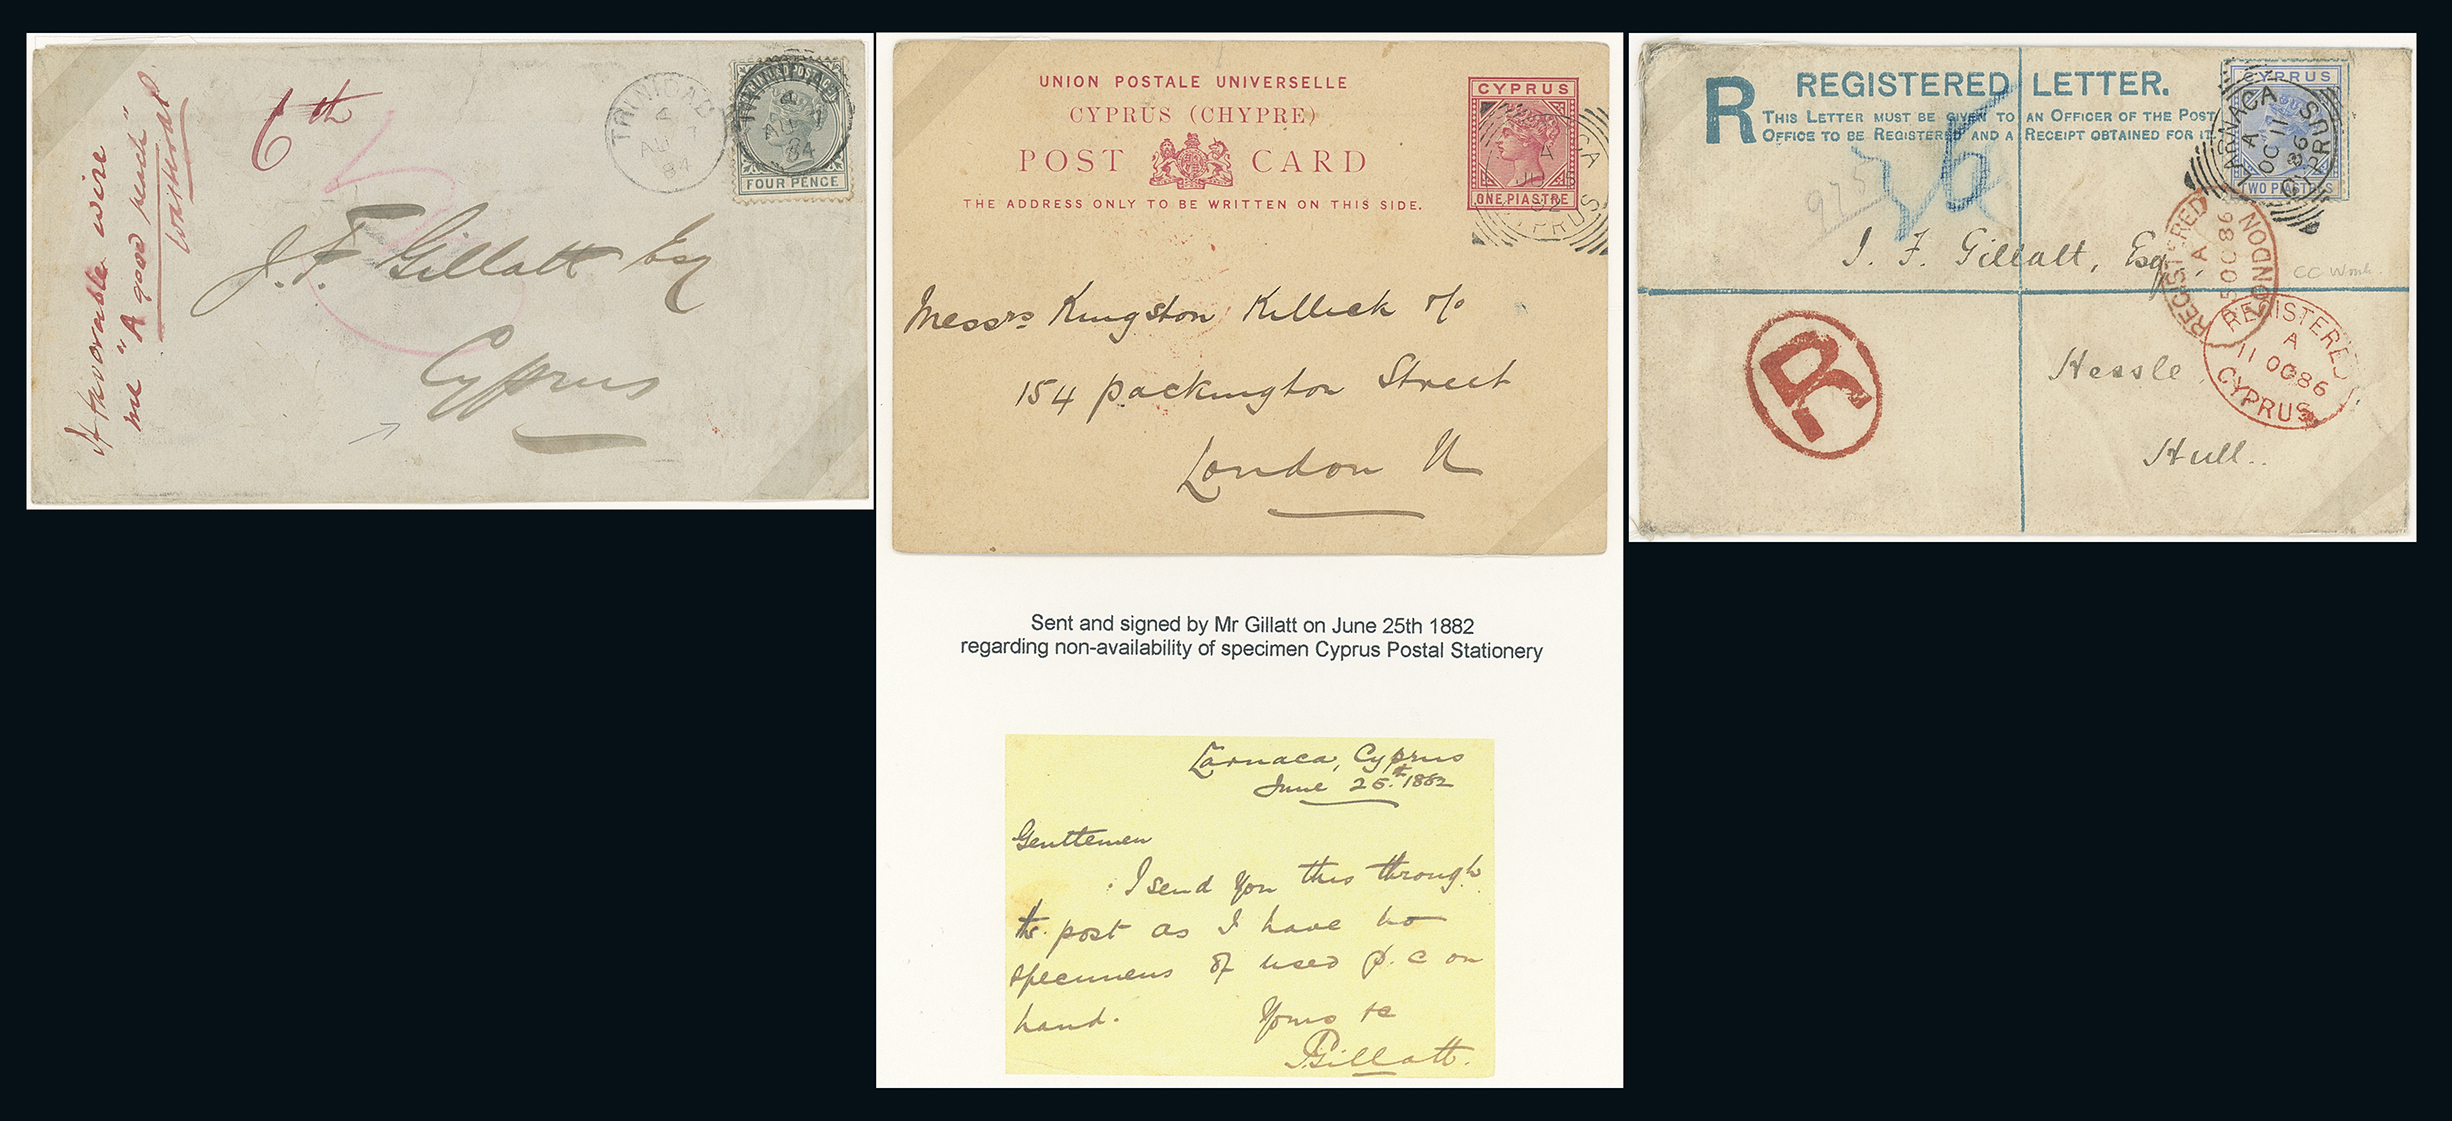 If favorable wire
me "A good
6th
TRINIDAD
A
AU
84
TRINIDAD POSTAGE
FOUR PENCE
J. F. Gillatt Esq
Cyprus
UNION POSTALE UNIVERSELLE
CYPRUS (CHYPRE)
POST CARD
THE ADDRESS ONLY TO BE WRITTEN ON THIS SIDE.
CYPRUS
ONE PIASTRE
CYPRUS
Messrs Kingston Killick &c
154 Packington Street
London N
Sent and signed by Mr Gillatt on June 25th 1882
regarding non-availability of specimen Cyprus Postal Stationery
Larnaca, Cyprus
June 25th 1882
Gentlemen
I send you this through
the post as I have no
specimens of used p.c on
hand.
Yours &c
JGillatt.
R REGISTERED LETTER.
THIS LETTER MUST BE GIVEN TO AN OFFICER OF THE POST
OFFICE TO BE REGISTERED AND A RECEIPT OBTAINED FOR IT.
CYPRUS
TWO PIASTRES
LARNACA
A
OC 11
86
CYPRUS
975
J. F. Gillatt, Esq,
REGISTERED
A
OC 86
LONDON
REGISTERED
A
11 OC 86
CYPRUS
R
Hessle
Hull.